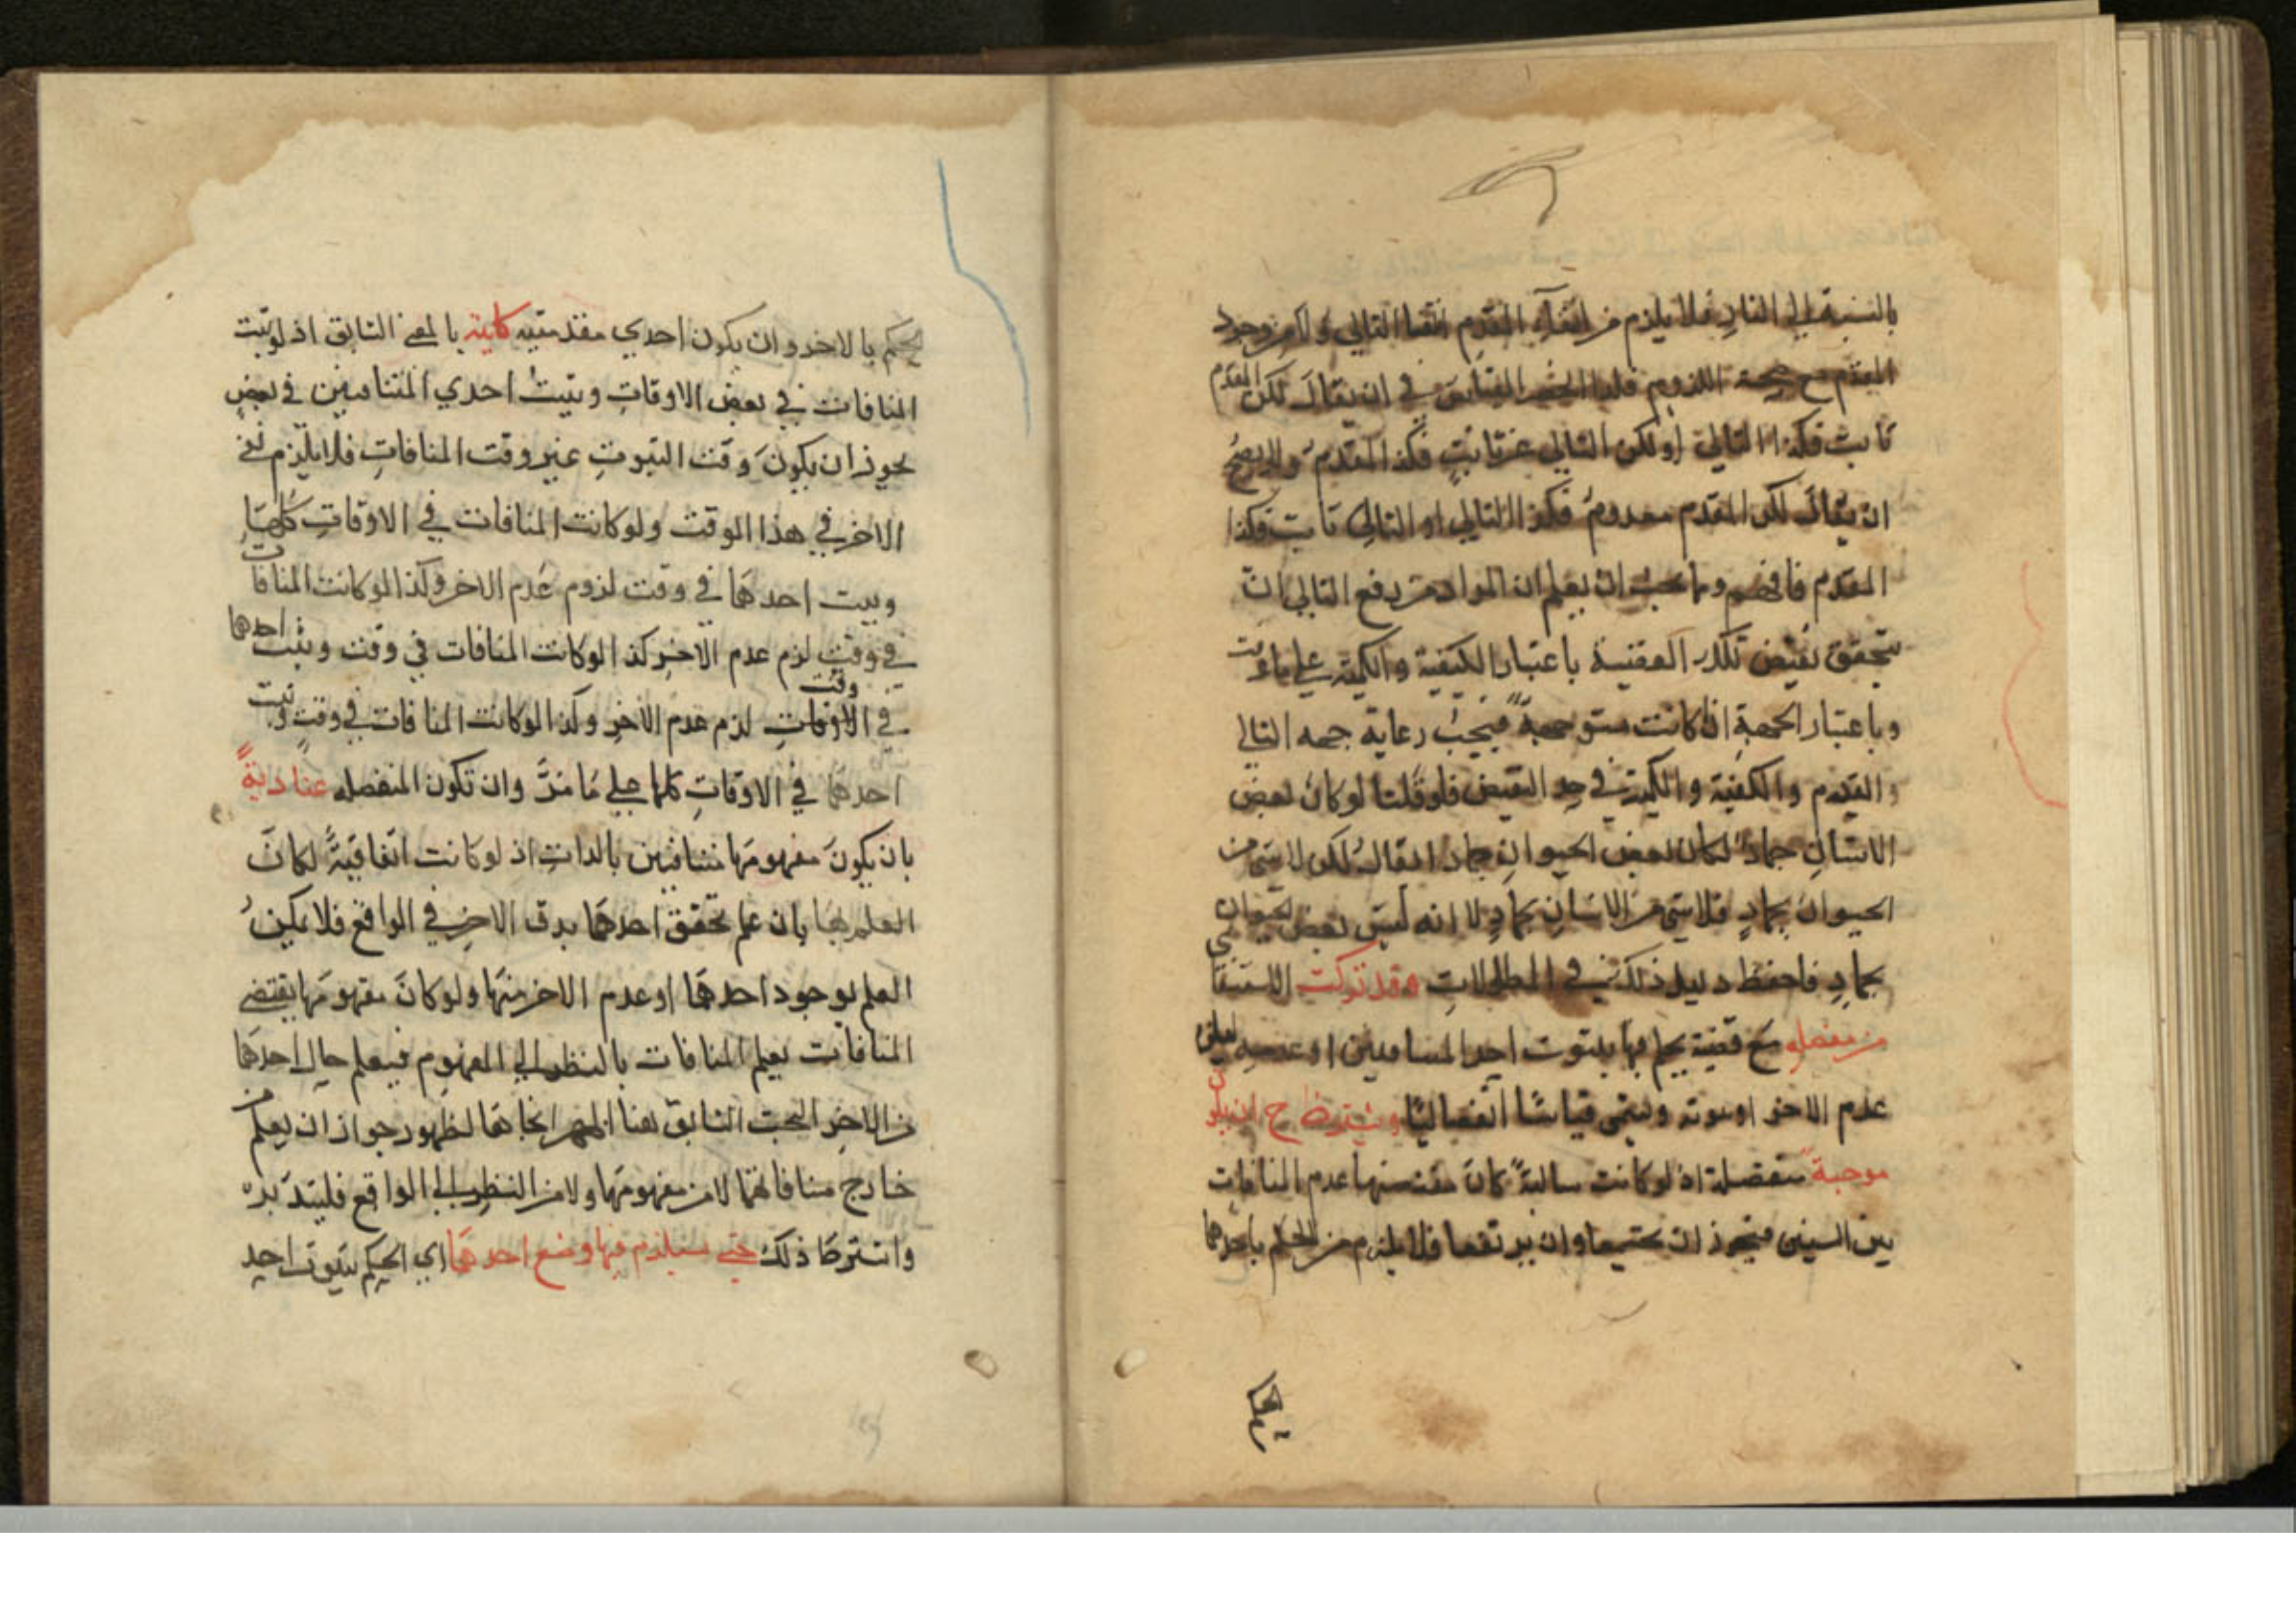 بالنسبة الى النار فلا يلزم من انتفاء المقدم انتفا التالي ولا من وجود
المقدم مع صحة اللزوم فلذا انحصر القياس في ان يقال لكن المقدم
ثابت فكذا التالي او لكن التالي غير ثابت فكذا المقدم ولا يصح
ان يقال لكن المقدم معدوم فكذا التالي او التالي ثابت فكذا
المقدم فافهم ومما يجب ان يعلم ان المراد من رفع التالي ان
يتحقق نقيض تلك القضية باعتبار الكيفية والكمية على ما عرفت
وباعتبار الجهة ان كانت موجهة فيجب رعاية جهة التالي
والمقدم والكيفية والكمية في حد النقيض فلو قلنا لو كان بعض
الانسان جمادا لكان بعض الحيوان جماد ايقال لكن لا شي من
الحيوان بجماد فلا شي من الانسان بجماد لا انه ليس بعض الحيوان
بجماد فاحفظ دليل ذلك في المطالبات وقد تركت الاستثنائي
من منفصله مع قضية يحكم بها بثبوت احد المتنافيين او عدمه ليعلم
عدم الاخر او ثبوته ويسمى قياسا انفصاليا ويشترط ح ان يكون
موجبة منفصلة اذ لو كانت سالبة كان مقتضيها عدم المنافات
بين الشيئين فيجوز ان يجتمعا وان يرتفعا فلا يلزم من الحكم باحدهما
الحكم بالاخر وان يكون احدي مقدمتيه كلية بالمعنى السابق اذ لو ثبت
المنافات في بعض الاوقات وثبت احدي المتنافيين في بعض
يجوز ان يكون وقت الثبوت غير وقت المنافات فلا يلزم نفي
الاخر في هذا الوقت ولو كانت المنافات في الاوقات كلها
وثبت احدهما في وقت لزوم عدم الاخر وكذا لو كانت المنافات
في وقت لزم عدم الاخر كذا لو كانت المنافات في وقت وثبت احدها
في الاوقات لزم عدم الاخر وكذا لو كانت المنافات في وقت وثبت وقت
احدهما في الاوقات كلها على ما مر وان تكون المنفصله عنادية
بان يكون مفهومها متنافيين بالذات اذ لو كانت اتفاقية لكان
العلم بها بان علم تحقق احدهما بدون الاخر في الواقع فلا يمكن
العلم بوجود احدهما او عدم الاخر منها ولو كان مفهومها يقتضي
المنافات يعلم المنافات بالنظر الى المفهوم فيعلم حال احدهما
من الاخر البحث السابق هنا لظهور جواز ان يعلم من
خارج منافاتهما لا من مفهومها ولا من النظر الى الواقع فليتدبره
واشترط ذلك حتى يستلزم فيها وضع احدهما اي الحكم بثبوت احد